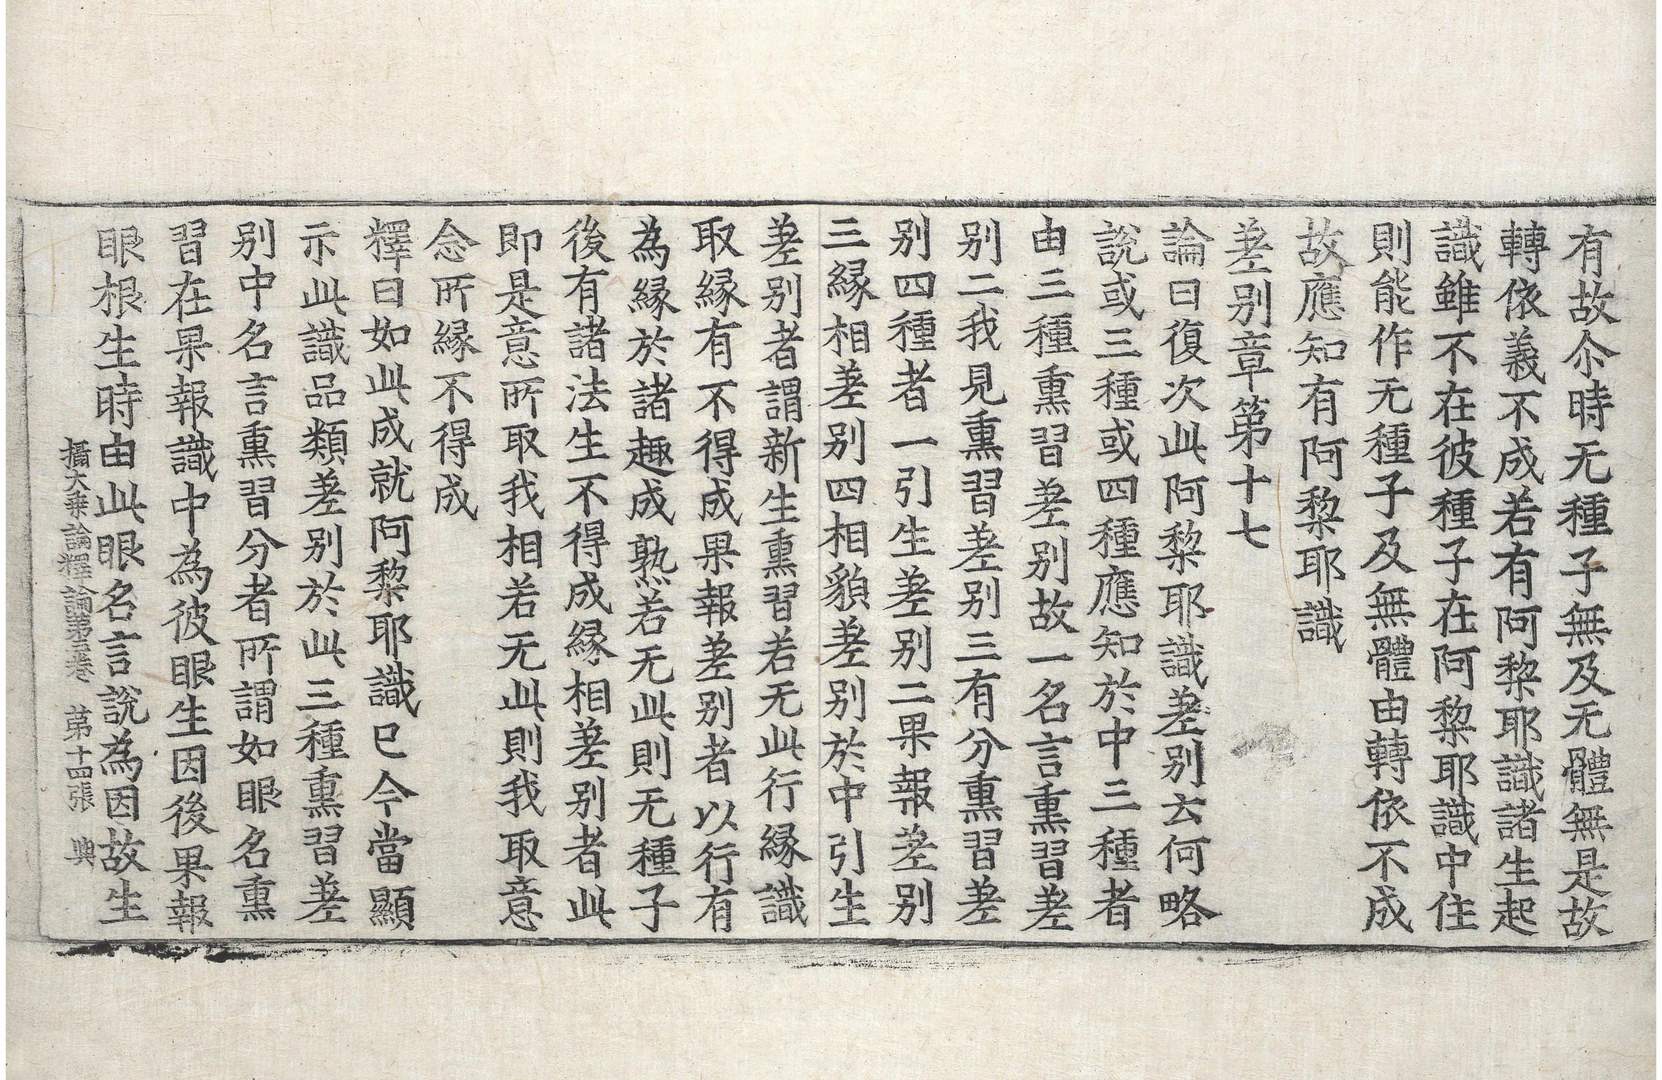 有故尒時无種子無及无體無是故
轉依義不成若有阿黎耶識諸生起
識雖不在彼種子在阿黎耶識中住
則能作无種子及無體由轉依不成
故應知有阿黎耶識
差别章第十七
論曰復次此阿黎耶識差别云何略
說或三種或四種應知於中三種者
由三種熏習差别故一名言熏習差
别二我見熏習差别三有分熏習差
别四種者一引生差别二果報差别
三緣相差别四相貌差别於中引生
差别者謂新生熏習若无此行緣識
取緣有不得成果報差别者以行有
為緣於諸趣成熟若无此則无種子
後有諸法生不得成緣相差别者此
即是意所取我相若无此則我取意
念所緣不得成
釋曰如此成就阿黎耶識已今當顯
示此識品類差别於此三種熏習差
别中名言熏習分者所謂如眼名熏
習在果報識中為彼眼生因後果報
眼根生時由此眼名言說為因故生
攝大乗論釋論第三卷 第十四張 興